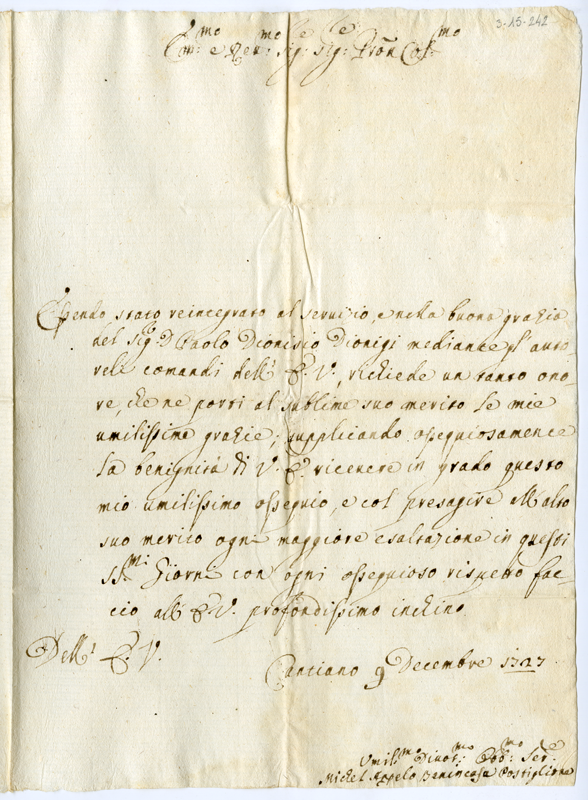 3-15-242
Em:mo e Rev:mo Sig:e Sig:e Pron Col:mo
Essendo stato reintegrato al servizio, e nella buona grazia
del Sig:e D Paolo Dionisio Dionigi mediante gl' auto
reli comandi dell' E. V., richiede un tanto ono
re, che ne porti al sublime suo merito le mie
umilissime grazie; supplicando ossequiosamente
la benignità di V. E. ricevere in grado questo
mio umilissimo ossequio, e col presagire all alto
suo merito ogni maggiore esaltazione in questi
SS:mi Giorni con ogni ossequioso rispetto fac-
cio all' E. V. profondissimo inchino
Dell' E. V.
Cantiano 9 Decembre 1727
Umil:mo Divot:mo Obb:mo Ser:e
Michel Angelo Benincasa Postiglione